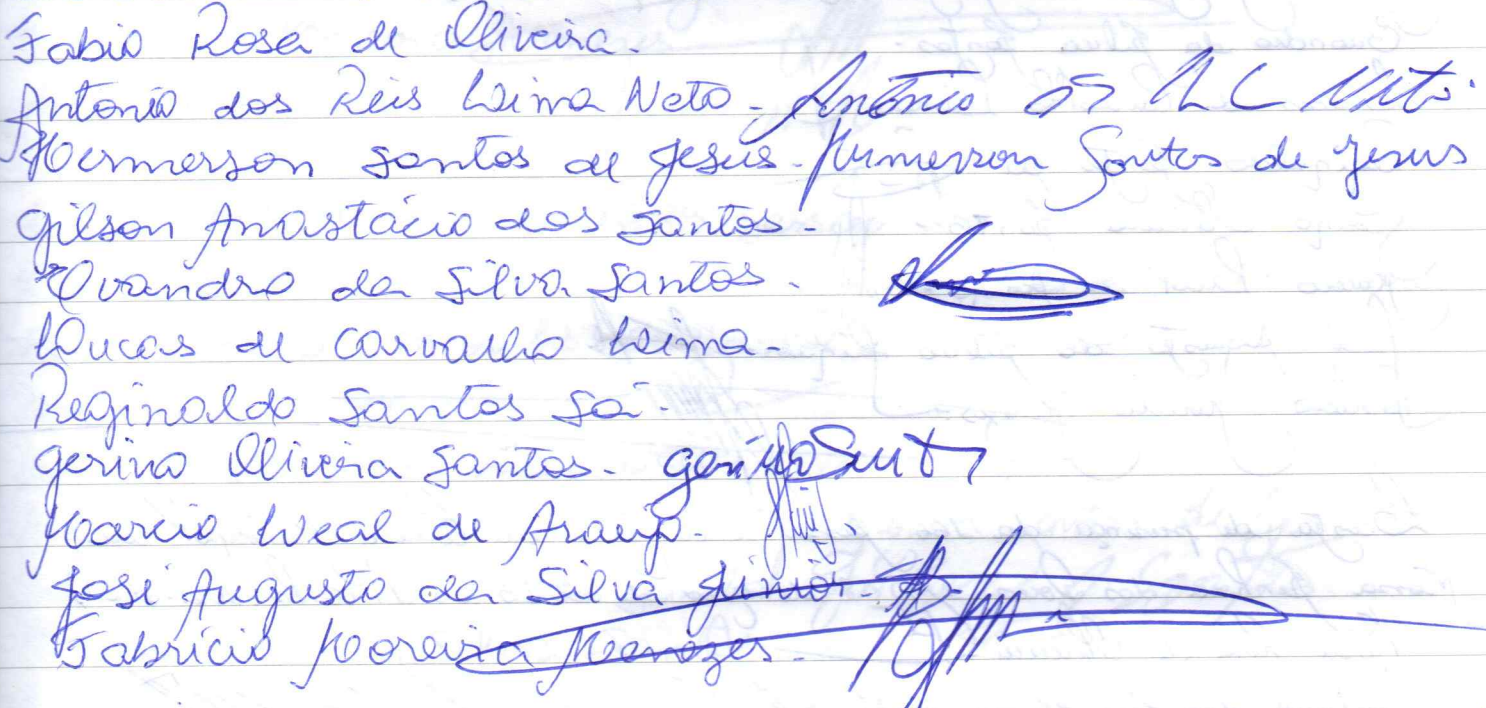 Fabio Rosa de Oliveira.
Antonio dos Reis Lima Neto. Antônio Neto.
Hermerson Santos de Jesus. Humerson Santos de Jesus
Gilson Anastácio dos Santos.
Evandro da Silva Santos.
Lucas de Carvalho Lima.
Reginaldo Santos Sá.
Gerino Oliveira Santos.
Marcio Leal de Araujo.
José Augusto da Silva Júnior.
Fabrício Moreira Menezes.